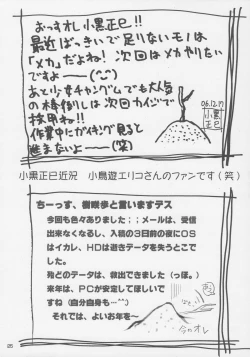 おっすオレ小黒正巳!!
最近ばっきいで足りないモノは
「メカ」だよね!次回はメカやりたい
ですよ――(^-^)
あとリメチャングムでも大人気
の棒倒しは次回カイジで
検甲ね!!
作業中ヒガキング見ると
進まないよ――(笑)
06.12.17
小黒
正巳
小黒正巳近況 小鳥遊エリコさんのファンです(笑)
ちーっす、樹咲歩と言いますデス
今回も色々ありました;;メールは、受信
出来なくなるし、入稿の3日前の夜にOS
はイカレ、HDは逝きデータを失うとこで
した。
殆どのデータは、救出できました(っぽ。)
来年は、PCが安定してほしいで
すね(自分自身も…^^;)
それでは、よいお年を~
今のオレ